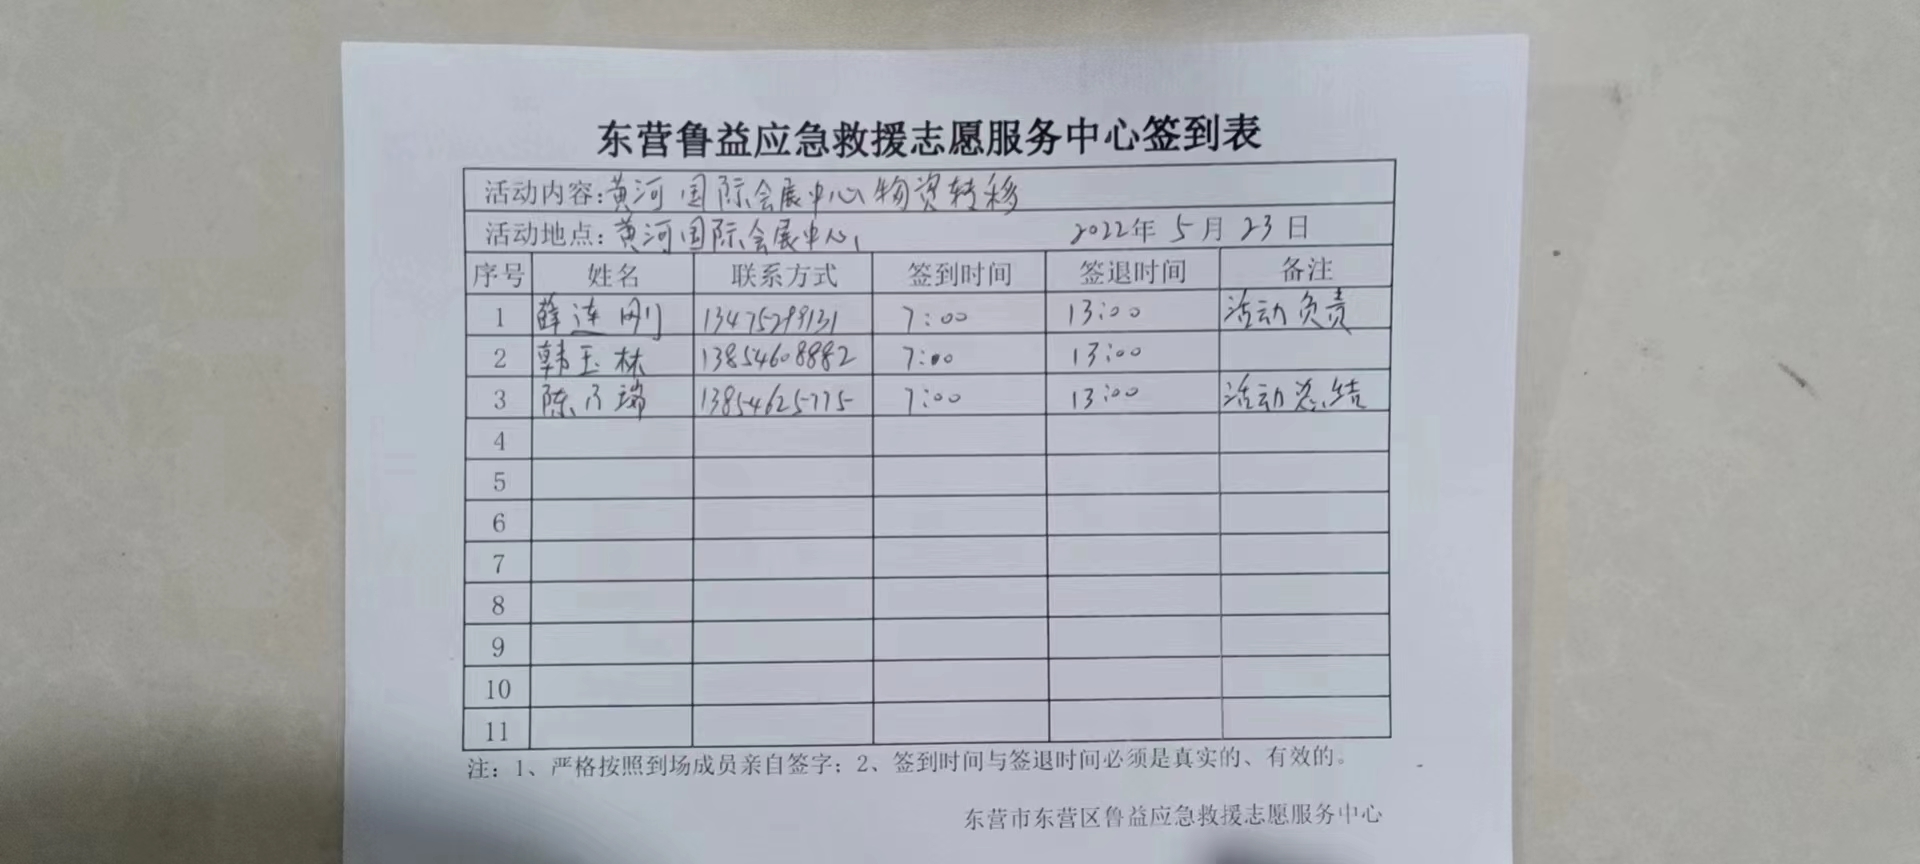 东营鲁益应急救援志愿服务中心签到表
活动内容:黄河国际会展中心物资转移
活动地点:黄河国际会展中心 2022年 5月 23日
序号 姓名 联系方式 签到时间 签退时间 备注
1 薛连刚 13475299131 7:00 13:00 活动负责
2 韩玉林 13854608882 7:00 13:00
3 陈乃瑞 13854625775 7:00 13:00 活动总结
4
5
6
7
8
9
10
11
注:1、严格按照到场成员亲自签字;2、签到时间与签退时间必须是真实的、有效的。
东营市东营区鲁益应急救援志愿服务中心